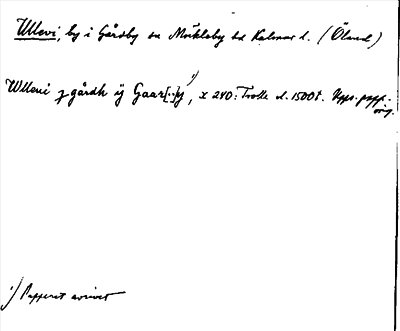 Ullevi, by i Gårdby sn Möckleby hd Kalmar l. (Öland)
1)
Wlleui j gårdh ij Gaar[..]y, x 240: Trolle d. 1500t. Upps. papp.
orig.
1) Papperet avrivet